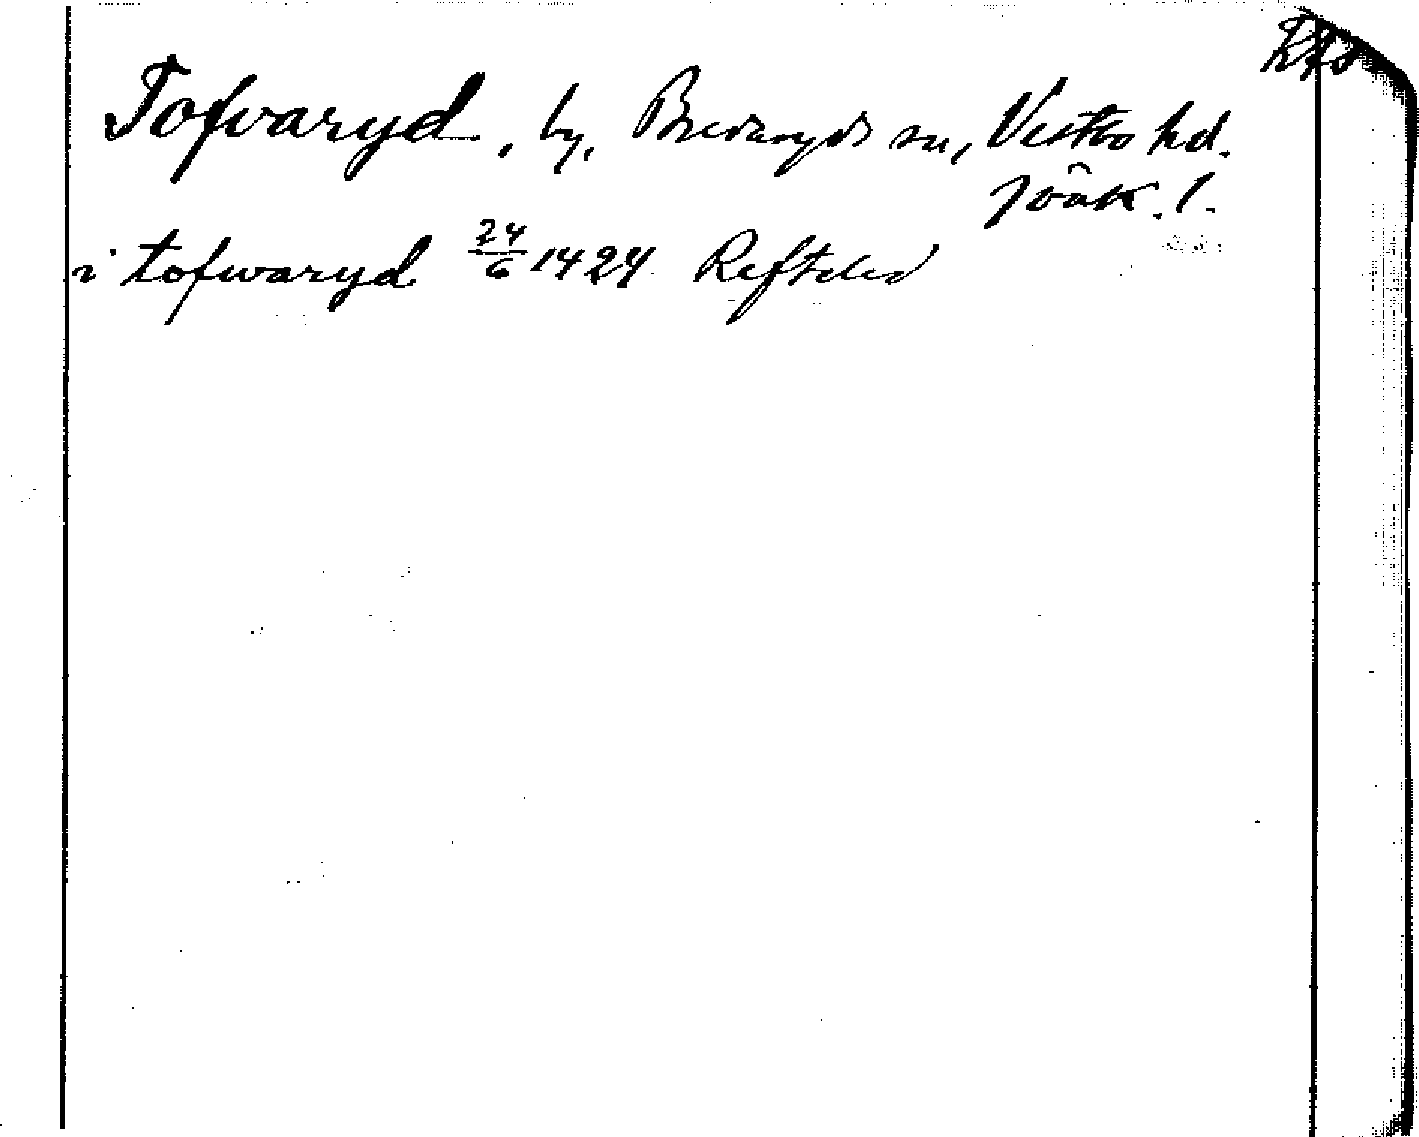 Tofvaryd, by, Bredaryds sn, Vestbo hd.
Jönk. l.
i tofwaryd 24/6 1424 Refteled